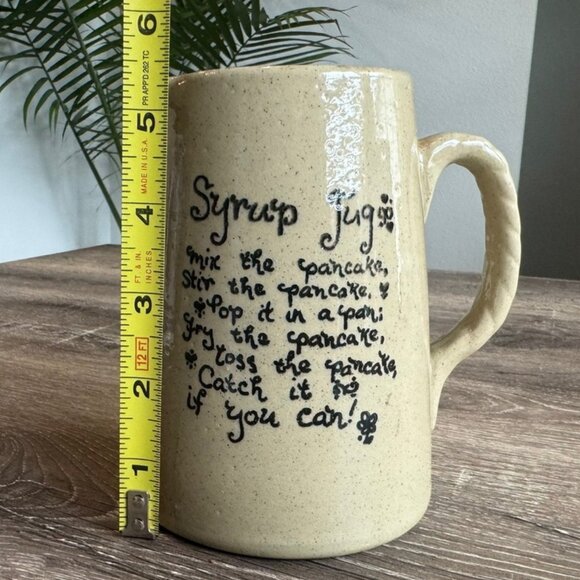 Syrup Jug
Mix the pancake,
Stir the pancake,
Pop it in a pan;
Fry the pancake,
Toss the pancake,
Catch it
if you can!
6
5
4
3
2
1
PR APP'D 262 TC
MADE IN U.S.A.
FT. & IN.
INCHES
12 FT